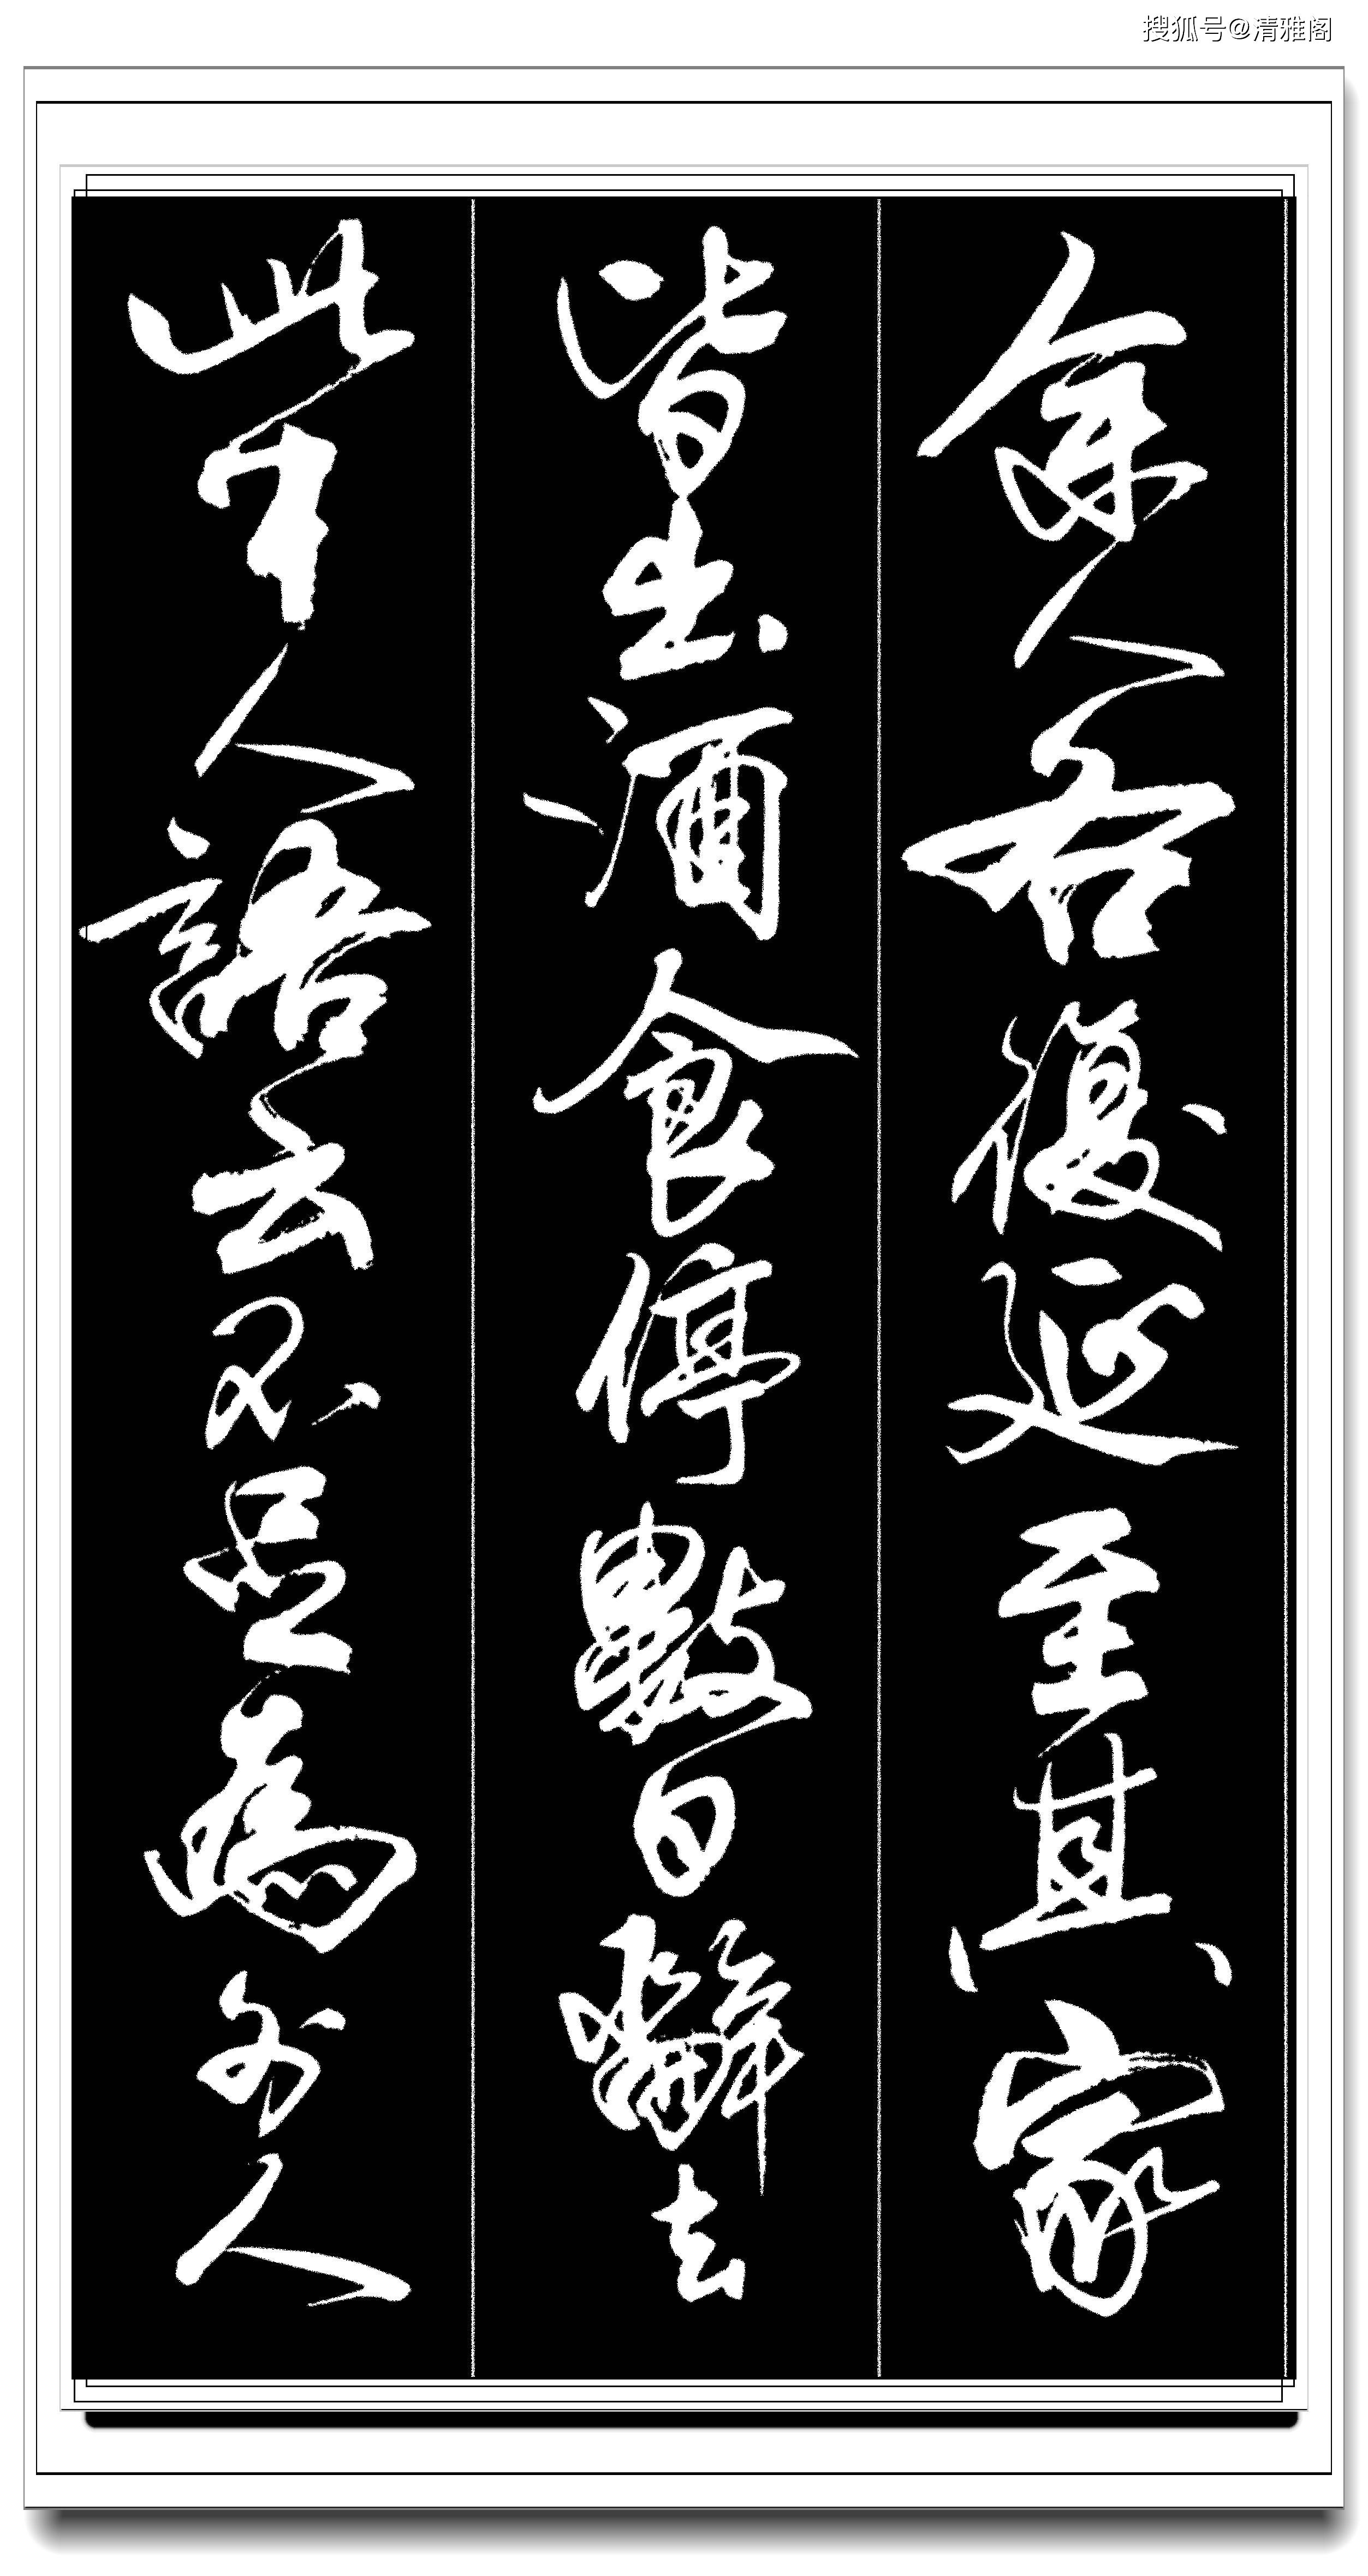 搜狐号@清雅阁
餘人各復延至其家
皆出酒食停數日辭去
此中人語云不足為外人